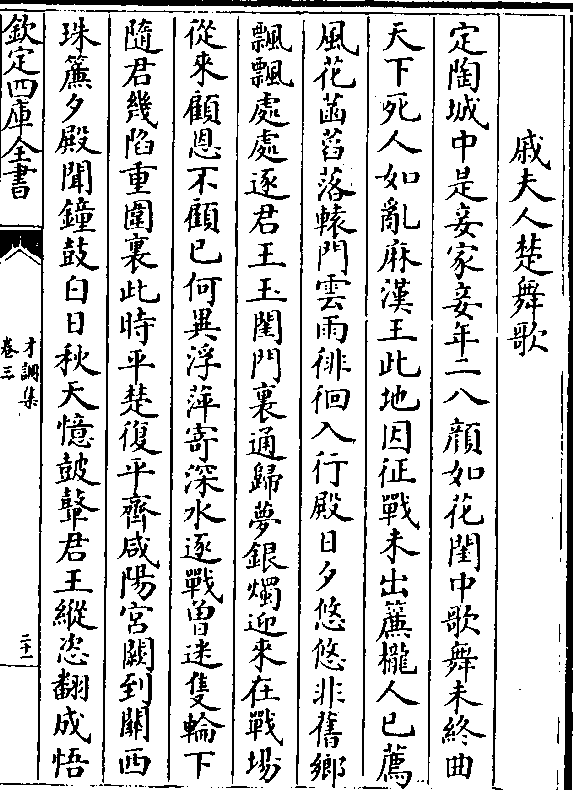 戚夫人楚舞歌
定陶城中是妾家妾年二八顔如花閨中歌舞未終曲
天下死人如亂麻漢王此地因征戰未出簾櫳人已薦
風花菡萏落轅門雲雨徘徊入行殿日夕悠悠非舊鄉
飄飄處處逐君王玉閨門裏通歸夢銀燭迎來在戰場
從來顧恩不顧已何異浮萍寄深水逐戰曾迷隻輪下
隨君幾陷重圍裏此時平楚復平齊咸陽宮闕到關西
珠簾夕殿聞鐘鼓白日秋天憶鼓鼙君王縱恣翻成悟
欽定四庫全書
才調集
卷三
二十一